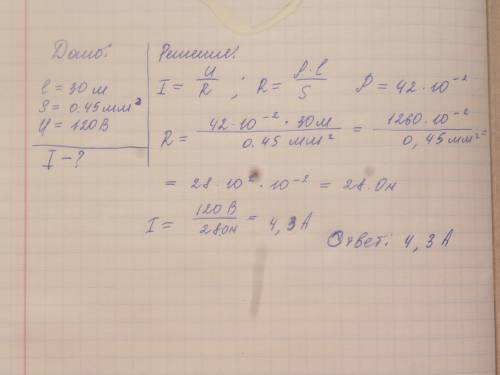 Дано:
l = 30 м
S = 0.45 мм²
U = 120 В
I - ?
Решение:
I = U/R ; R = ρ·l/S ρ = 42·10⁻²
R = 42·10⁻²·30м / 0.45 мм² = 1260·10⁻² / 0,45мм² =
= 28·10²·10⁻² = 28 Ом
I = 120 В / 28 Ом = 4,3 А
Ответ: 4,3 А